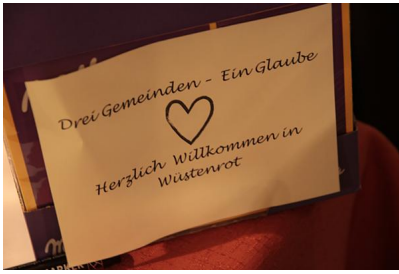 Drei Gemeinden - Ein Glaube
Herzlich Willkommen in
Wüstenrot